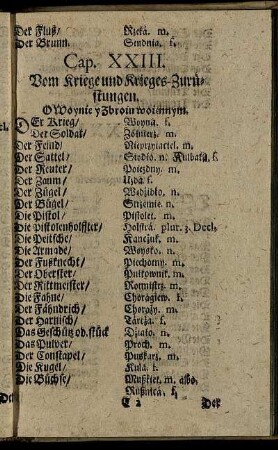 Der Fluß/ Rzeká. m.
Der Brunn. Studnia. f.
Cap. XXIII.
Vom Kriege und Krieges-Zurü-
stungen.
O Woynie y Zbroiu woiennym.
Der Krieg/ Woyna. f.
Der Soldat/ Zolnierz. m.
Der Feind/ Nieprzyiaciel. m.
Der Sattel/ Siodło. n. Kulbaká. f.
Der Reuter/ Poiezdny. m.
Der Zaum/ Uzdá f.
Der Zügel/ Wędzidło. n.
Der Bügel/ Strzemie. n.
Die Pistol/ Pistolet. m.
Die Pistolenholffter/ Holstrá. plur. 2. Decl.
Die Peitsche/ Kańczuk. m.
Die Armade/ Woysko. n.
Der Fußknecht/ Piechotny. m.
Der Oberster/ Pułkownik. m.
Der Rittmeister/ Rotmistrz. m.
Die Fahne/ Chorągiew. f.
Der Fähndrich/ Chorąży. m.
Der Harnisch/ Tarczá. f.
Das Geschütz od. stück Działo. n.
Das Pulver/ Proch. m.
Der Constapel/ Puszkarz. m.
Die Kugel/ Kula. f.
Die Büchse/ Muszkiet. m. albo
Rusznicá. f.
Der